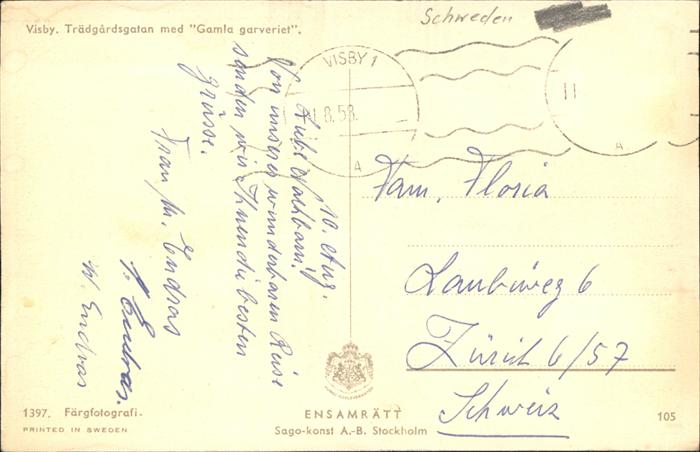 Schweden
Visby. Trädgårdsgatan med "Gamla garveriet".
VISBY 1
8.58
A
11
A
10. Aug.
Liebe Nachbarn,
Von unserer wunderbaren Reise
senden wir Ihnen die besten
Grüsse.
Frau M. Endras
Endras.
W. Endras
Fam. Floria
Laubiweg 6
Zürich 6/57
Schweiz
1397. Färgfotografi.
PRINTED IN SWEDEN
ENSAMRÄTT
Sago-konst A.-B. Stockholm
105